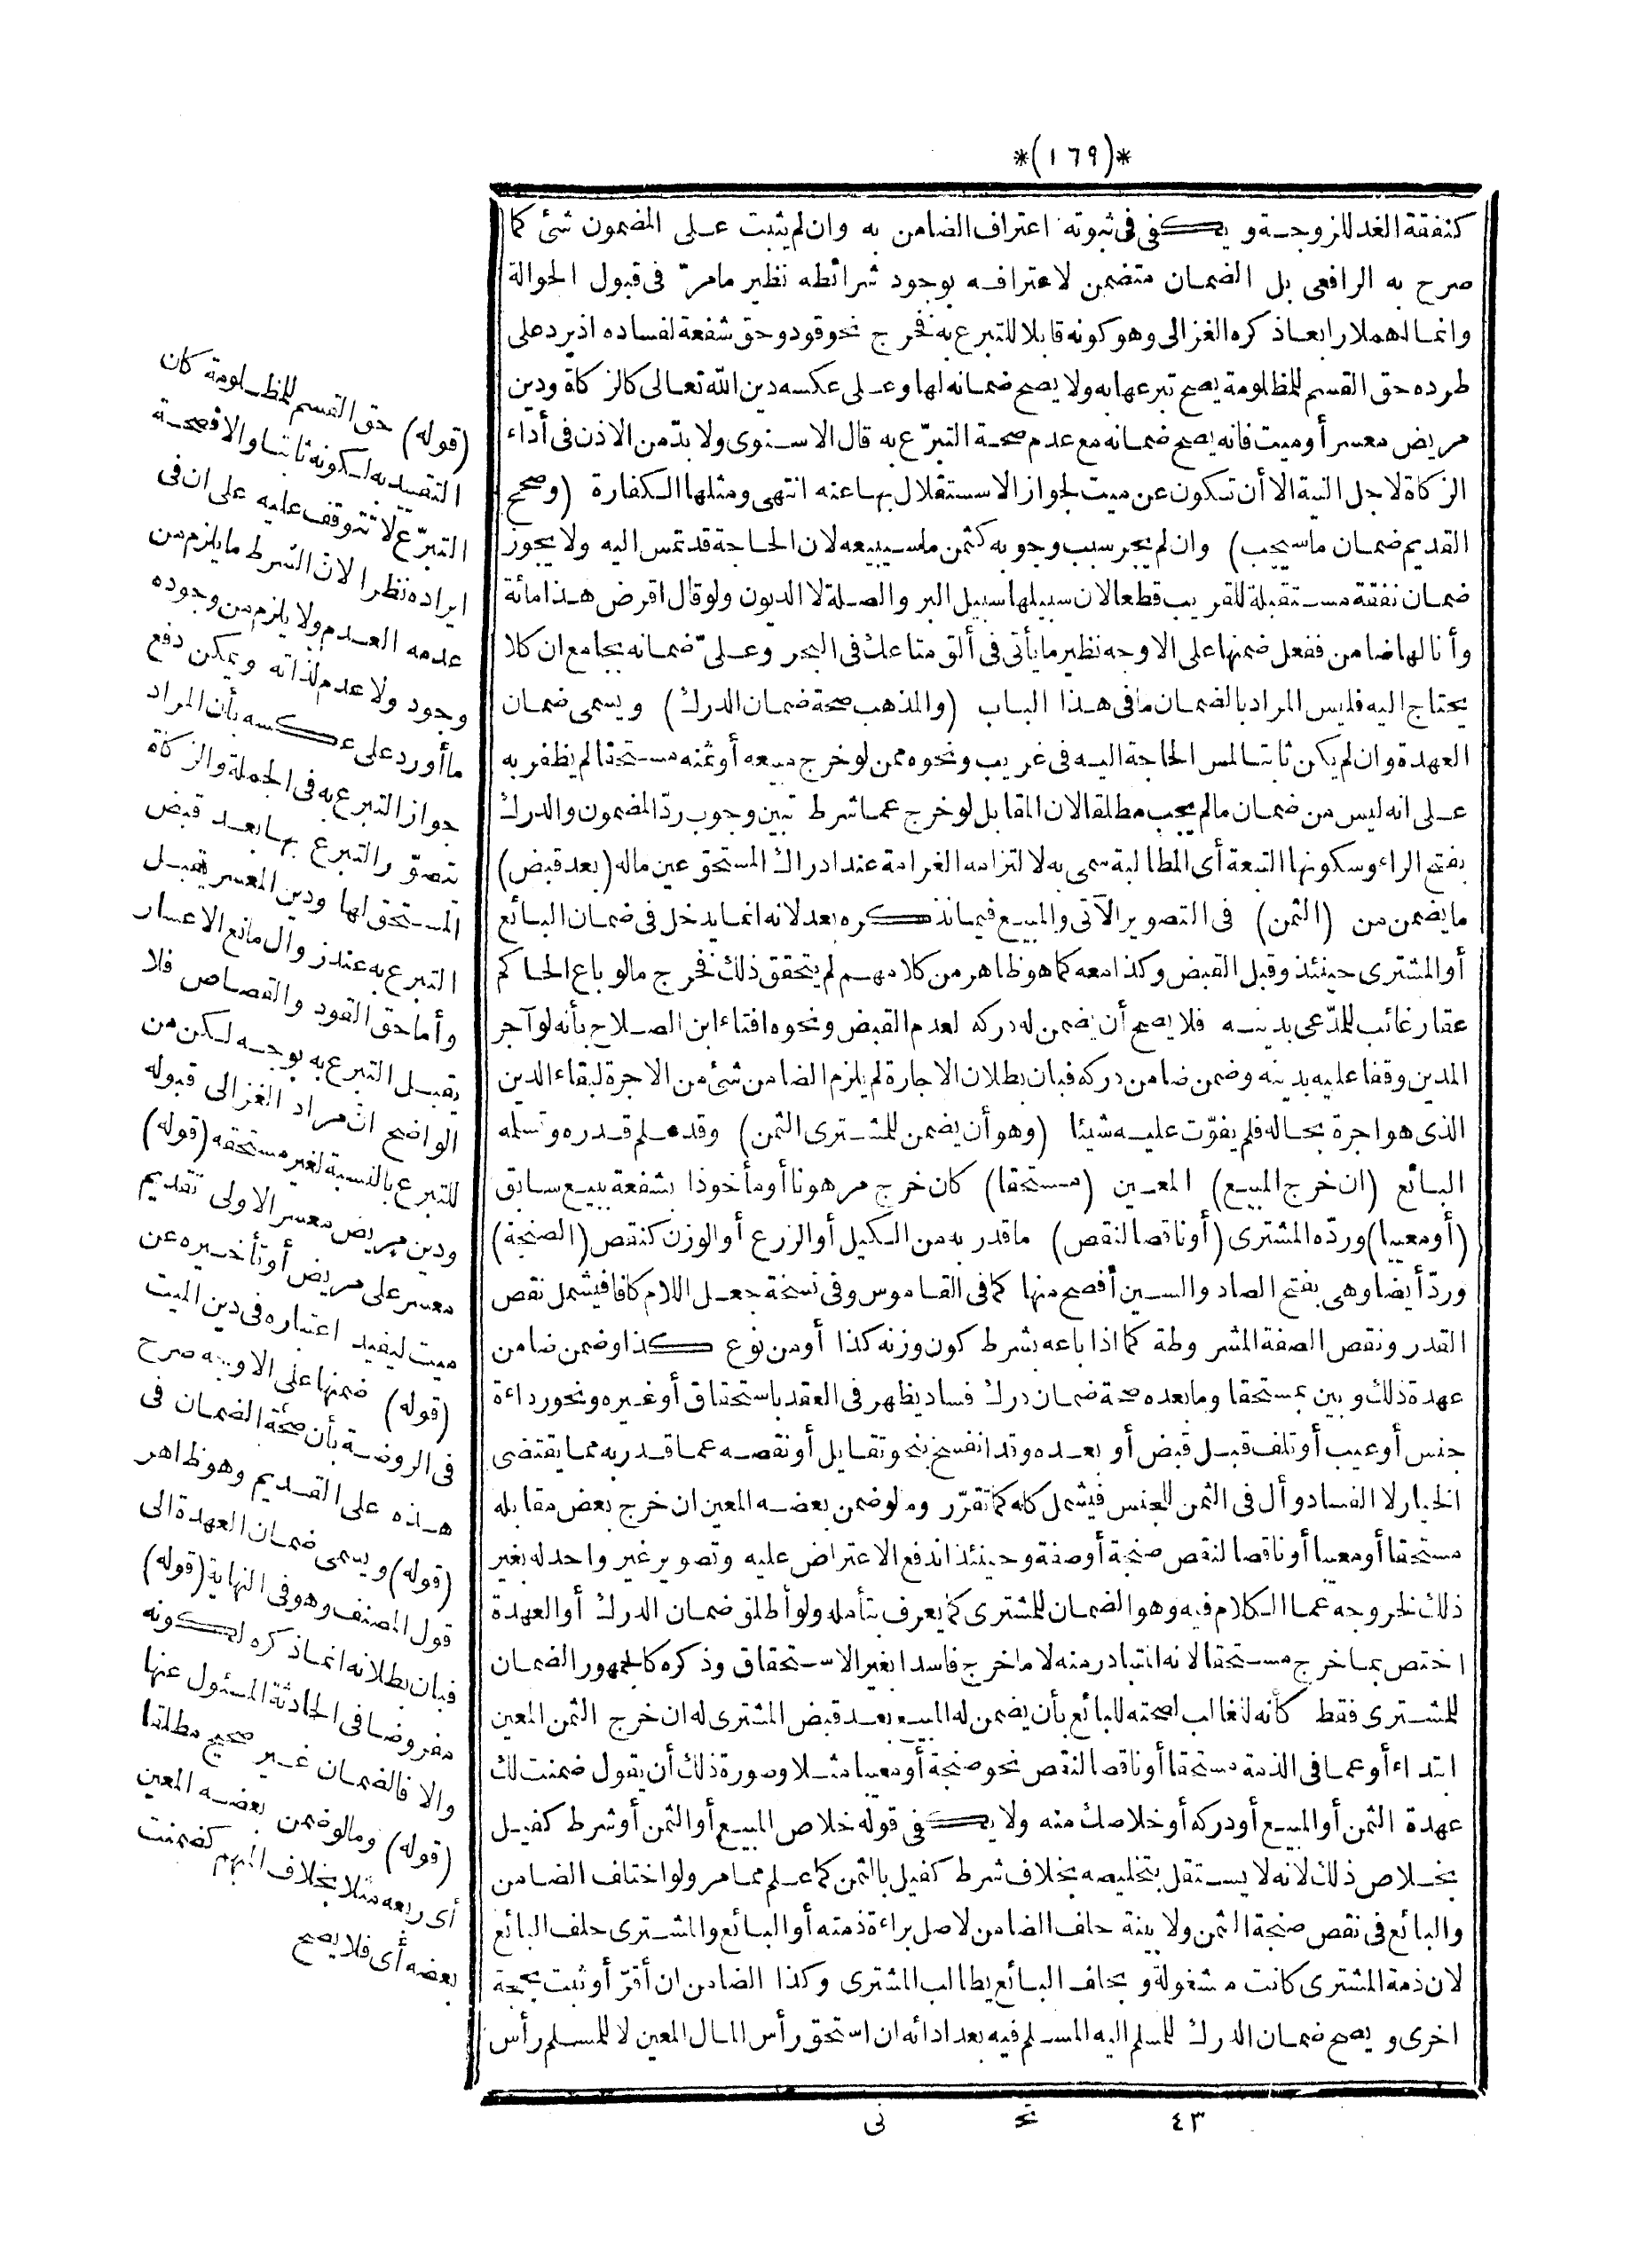 *(١٦٩)*
كنفقة الغد للزوجة ويكفى فى ثبوته اعتراف الضامن به وان لم يثبت على المضمون شئ كما
صرح به الرافعى بل الضمان متضمن لاعترافه بوجود شرائطه نظير مامرّ فى قبول الحوالة
وانما اهملا رابعا ذكره الغزالى وهو كونه قابلا للتبرع به فخرج نحو قود وحق شفعة لفساده اذ يرد على
طرده حق القسم للمظلومة يصح تبرعها به ولا يصح ضمانه لها وعلى عكسه دين الله تعالى كالزكاة ودين
مريض معسر أو ميت فانه يصح ضمانه مع عدم صحة التبرّع به قال الاسنوى ولا بدّ من الاذن فى أداء
الزكاة لاجل النية الا أن تكون عن ميت لجواز الاستقلال بها عنه انتهى ومثلها الكفارة (وصحح
القديم ضمان ماسيجب) وان لم يجر سبب وجوبه كثمن ماسيبيعه لان الحاجة قد تمس اليه ولا يجوز
ضمان نفقة مستقبلة للقريب قطعا لان سبيلها سبيل البر والصلة لا الديون ولو قال اقرض هذا مائة
وأنا لها ضامن ففعل ضمنها على الاوجه نظير مايأتى فى ألق متاعك فى البحر وعلىّ ضمانه بجامع ان كلا
يحتاج اليه فليس المراد بالضمان مافى هذا الباب (والمذهب صحة ضمان الدرك) ويسمى ضمان
العهدة وان لم يكن ثابتا لمس الحاجة اليه فى غريب ونحوه ممن لو خرج مبيعه أو ثمنه مستحقا لم يظفر به
على انه ليس من ضمان مالم يجب مطلقا لان المقابل لو خرج عما شرط تبين وجوب ردّ المضمون والدرك
بفتح الراء وسكونها التبعة أى المطالبة سمى به لالتزامه الغرامة عند ادراك المستحق عين ماله (بعد قبض)
مايضمن من (الثمن) فى التصوير الآتى والمبيع فيما نذكره بعد لانه انما يدخل فى ضمان البائع
أو المشترى حينئذ وقبل القبض وكذا معه كما هو ظاهر من كلامهم لم يتحقق ذلك فخرج مالو باع الحاكم
عقار غائب للمدّعى بدينه فلا يصح أن يضمن له دركه لعدم القبض ونحوه افتاء ابن الصلاح بأنه لو آجر
المدين وقفا عليه بدينه وضمن ضامن دركه فبان بطلان الاجارة لم يلزم الضامن شئ من الاجرة لبقاء الدين
الذى هو اجرة بحاله فلم يفوّت عليه شيئا (وهو أن يضمن للمشترى الثمن) وقد علم قدره وتسلمه
البائع (ان خرج المبيع) المعين (مستحقا) كان خرج مرهونا أو مأخوذا بشفعة ببيع سابق
(أو معيبا) وردّه المشترى (أو ناقصا لنقص) ماقدر به من الكيل أو الزرع أو الوزن كنقص (الصنجة)
وردّ أيضا وهى بفتح الصاد والسين أفصح منها كما فى القاموس وفى نسخة جعل اللام كافا فيشمل نقص
القدر ونقص الصفة المشروطة كما اذا باعه بشرط كون وزنه كذا أو من نوع كذا وضمن ضامن
عهدة ذلك وبين بمستحقا وما بعده صحة ضمان درك فساد يظهر فى العقد باستحقاق أو غيره ونحو رداءة
جنس أو عيب أو تلف قبل قبض أو بعده وقد انفسخ بنحو تقايل أو نقصه عما قدر به مما يقتضى
الخيار لا الفساد وأل فى الثمن للجنس فيشمل كله كما تقرّر ومالو ضمن بعضه المعين ان خرج بعض مقابله
مستحقا أو معيبا أو ناقصا لنقص صنجة أو صفة وحينئذ اندفع الاعتراض عليه وتصوير غير واحد له بغير
ذلك لخروجه عما الكلام فيه وهو الضمان للمشترى كما يعرف بتأمله ولو أطلق ضمان الدرك أو العهدة
اختص بما خرج مستحقا لانه المتبادر منه لا ماخرج فاسدا بغير الاستحقاق وذكره كالجمهور الضمان
للمشترى فقط كأنه للغالب لصحته للبائع بأن يضمن له المبيع بعد قبض المشترى له ان خرج الثمن المعين
ابتداء أو عما فى الذمة مستحقا أو ناقصا لنقص نحو صنجة أو معيبا مثلا وصورة ذلك أن يقول ضمنت لك
عهدة الثمن أو المبيع أو دركه أو خلاصك منه ولا يكفى قوله خلاص المبيع أو الثمن أو شرط كفيل
بخلاص ذلك لانه لا يستقل بتخليصه بخلاف شرط كفيل بالثمن كما علم مما مر ولو اختلف الضامن
والبائع فى نقص صنجة الثمن ولا بينة حلف الضامن لاصل براءة ذمته أو البائع والمشترى حلف البائع
لان ذمة المشترى كانت مشغولة وبحلف البائع يطالب المشترى وكذا الضامن ان أقرّ أو ثبت بحجة
اخرى ويصح ضمان الدرك للمسلم اليه المسلم فيه بعد ادائه ان استحق رأس المال المعين لا للمسلم رأس
٤٣ تح نى
(قوله) حق القسم للمظلومة كان
التقييد به لكونه ثابتا والا فصحة
التبرّع لا تتوقف عليه على ان فى
ايراده نظرا لان الشرط مايلزم من
عدمه العدم ولا يلزم من وجوده
وجود ولا عدم لذاته ويمكن دفع
ماأورد على عكسه بأن المراد
جواز التبرع به فى الجملة والزكاة
يتصوّر التبرع بها بعد قبض
المستحق لها ودين المعسر يقبل
التبرع به عند زوال مانع الاعسار
وأما حق القود والقصاص فلا
يقبل التبرع به بوجه لكن من
الواضح ان مراد الغزالى قبوله
للتبرع بالنسبة لغير مستحقه (قوله)
ودين مريض معسر الاولى تقديم
معسر على مريض أو تأخيره عن
ميت ليفيد اعتباره فى دين الميت
(قوله) ضمنها على الاوجه صرح
فى الروضة بأن صحة الضمان فى
هذه على القديم وهو ظاهر
(قوله) ويسمى ضمان العهدة الى
قول المصنف وهو فى النهاية (قوله)
فبان بطلانه انما ذكره لكونه
مفروضا فى الحادثة المسئول عنها
والا فالضمان غير صحيح مطلقا
(قوله) ومالو ضمن بعضه المعين
أى ربعه مثلا بخلاف المبهم كضمنت
بعضه أى فلا يصح